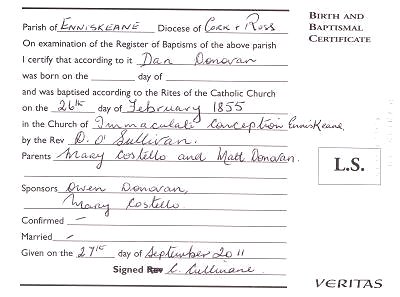 Parish of ENNISKEANE Diocese of Cork & Ross
On examination of the Register of Baptisms of the above parish
I certify that according to it Dan Donovan
was born on the day of
and was baptised according to the Rites of the Catholic Church
on the 26th day of February 1855
in the Church of Immaculate Conception Enniskeane,
by the Rev D. O'Sullivan.
Parents Mary Costello and Matt Donovan.
Sponsors Owen Donovan,
Mary Costello.
Confirmed —
Married —
Given on the 27th day of September 2011
Signed Rev C. Cullinane.
BIRTH AND
BAPTISMAL
CERTIFICATE
L.S.
VERITAS